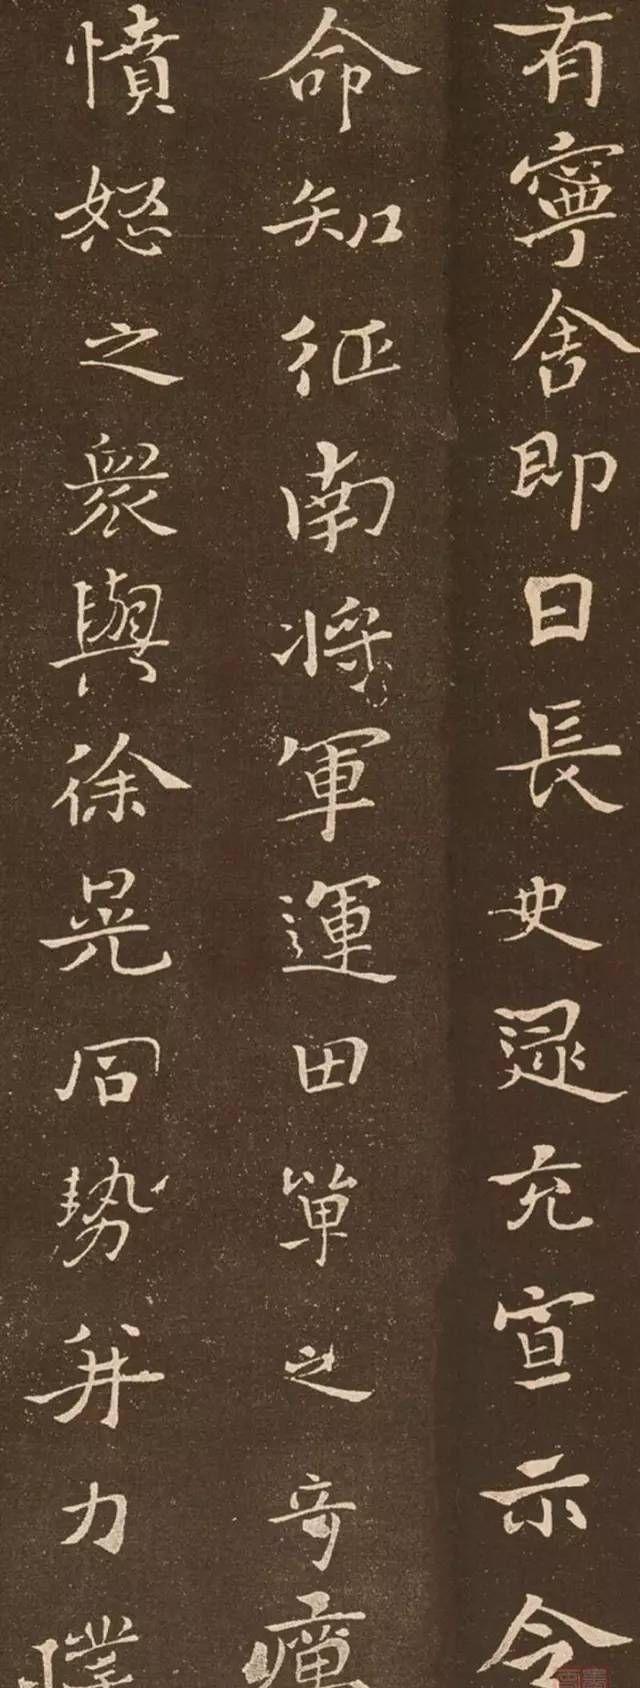 有寧舍即日長史逯充宣示令
命知征南將軍運田單之奇
憤怒之衆與徐晃同勢并力撲